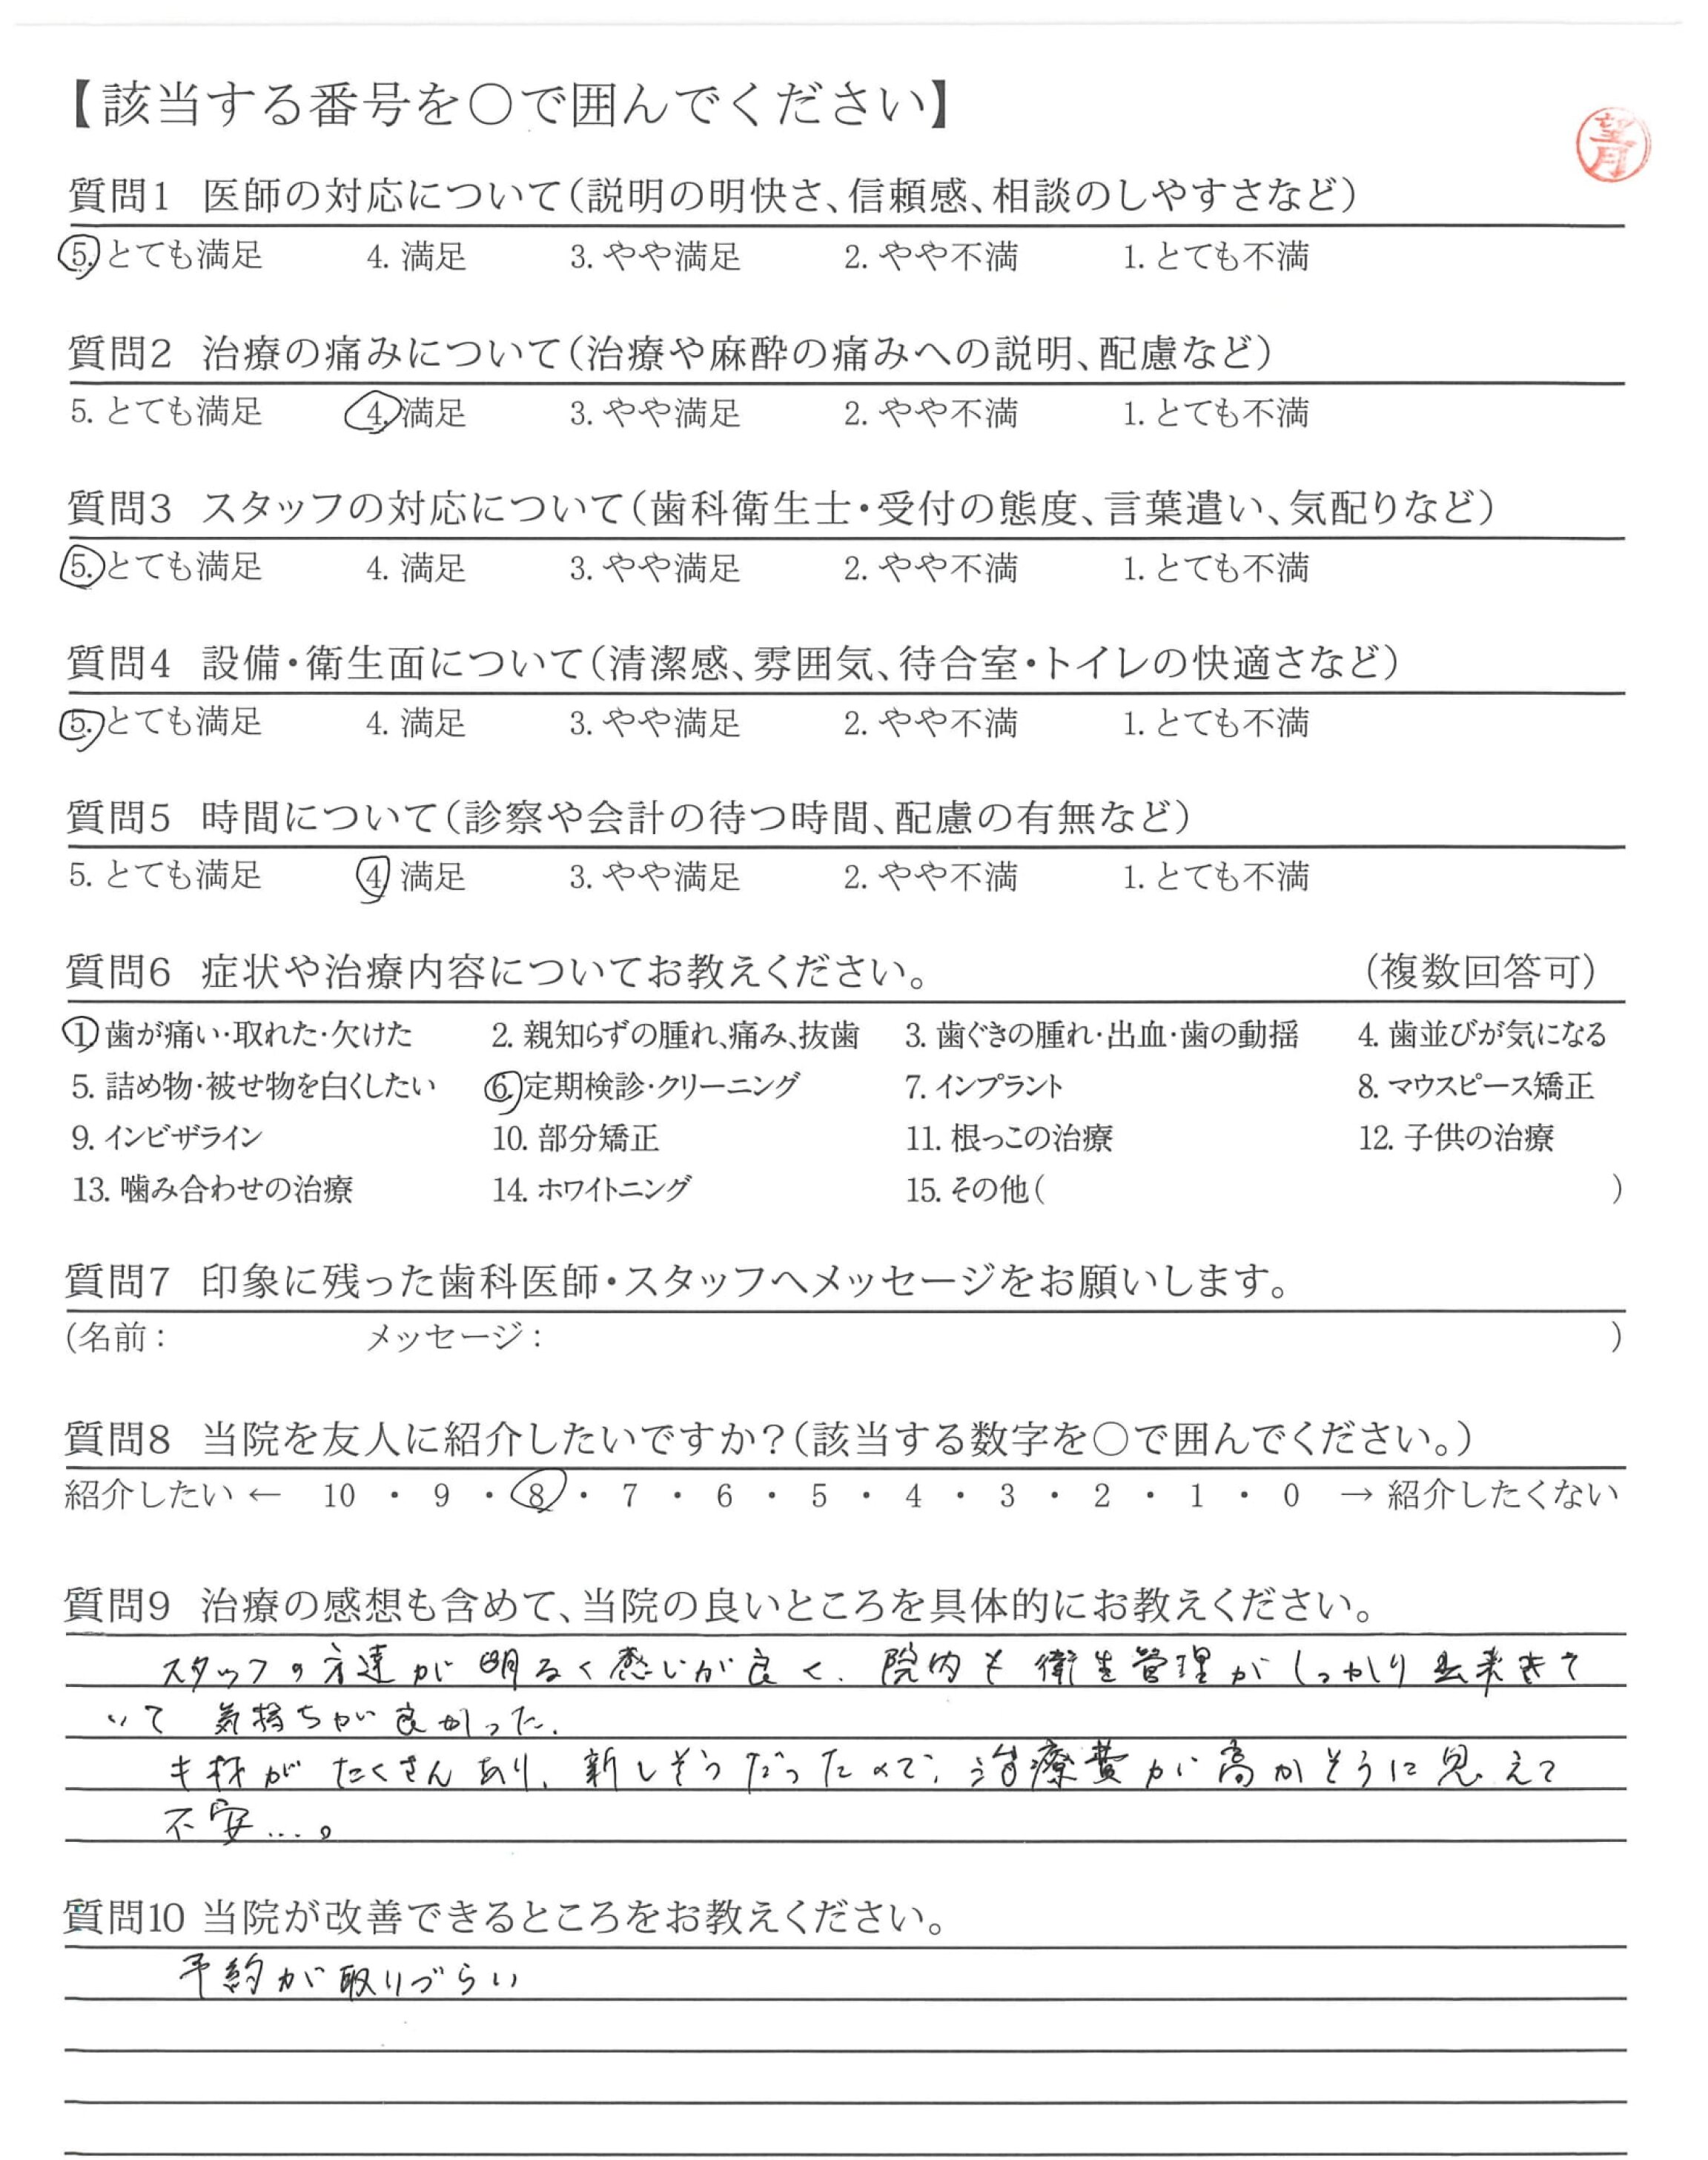 【該当する番号を○で囲んでください】
望月
質問1 医師の対応について(説明の明快さ、信頼感、相談のしやすさなど)
5. とても満足 4. 満足 3. やや満足 2. やや不満 1. とても不満
質問2 治療の痛みについて(治療や麻酔の痛みへの説明、配慮など)
5. とても満足 4. 満足 3. やや満足 2. やや不満 1. とても不満
質問3 スタッフの対応について(歯科衛生士・受付の態度、言葉遣い、気配りなど)
5. とても満足 4. 満足 3. やや満足 2. やや不満 1. とても不満
質問4 設備・衛生面について(清潔感、雰囲気、待合室・トイレの快適さなど)
5. とても満足 4. 満足 3. やや満足 2. やや不満 1. とても不満
質問5 時間について(診察や会計の待つ時間、配慮の有無など)
5. とても満足 4. 満足 3. やや満足 2. やや不満 1. とても不満
質問6 症状や治療内容についてお教えください。 (複数回答可)
1. 歯が痛い・取れた・欠けた 2. 親知らずの腫れ、痛み、抜歯 3. 歯ぐきの腫れ・出血・歯の動揺 4. 歯並びが気になる
5. 詰め物・被せ物を白くしたい 6. 定期検診・クリーニング 7. インプラント 8. マウスピース矯正
9. インビザライン 10. 部分矯正 11. 根っこの治療 12. 子供の治療
13. 噛み合わせの治療 14. ホワイトニング 15. その他( )
質問7 印象に残った歯科医師・スタッフへメッセージをお願いします。
(名前: メッセージ: )
質問8 当院を友人に紹介したいですか?(該当する数字を○で囲んでください。)
紹介したい ← 10 ・ 9 ・ 8 ・ 7 ・ 6 ・ 5 ・ 4 ・ 3 ・ 2 ・ 1 ・ 0 → 紹介したくない
質問9 治療の感想も含めて、当院の良いところを具体的にお教えください。
スタッフの方達が明るく感じが良く、院内も衛生管理がしっかり出来きて
いて気持ちが良かった。
キ材がたくさんあり、新しそうだったので、治療費が高かそうに思えて
不安…。
質問10 当院が改善できるところをお教えください。
予約が取りづらい